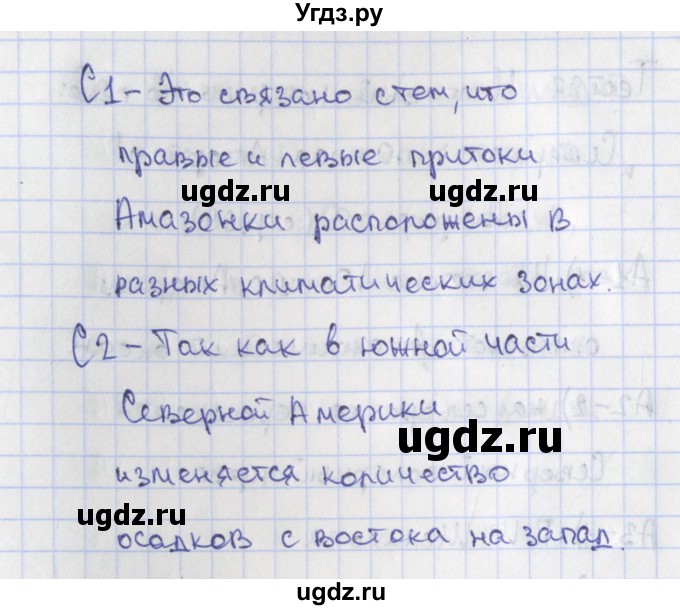 Угдз.ру
С1 - Это связано с тем, что
правые и левые притоки
ugdz.ru ugdz.ru
Амазонки расположены в
разных климатических зонах.
С2 - Так как в южной части
Северной Америки
ugdz.ru
изменяется количество
ugdz.ru
осадков с востока на запад.
ugdz.ru